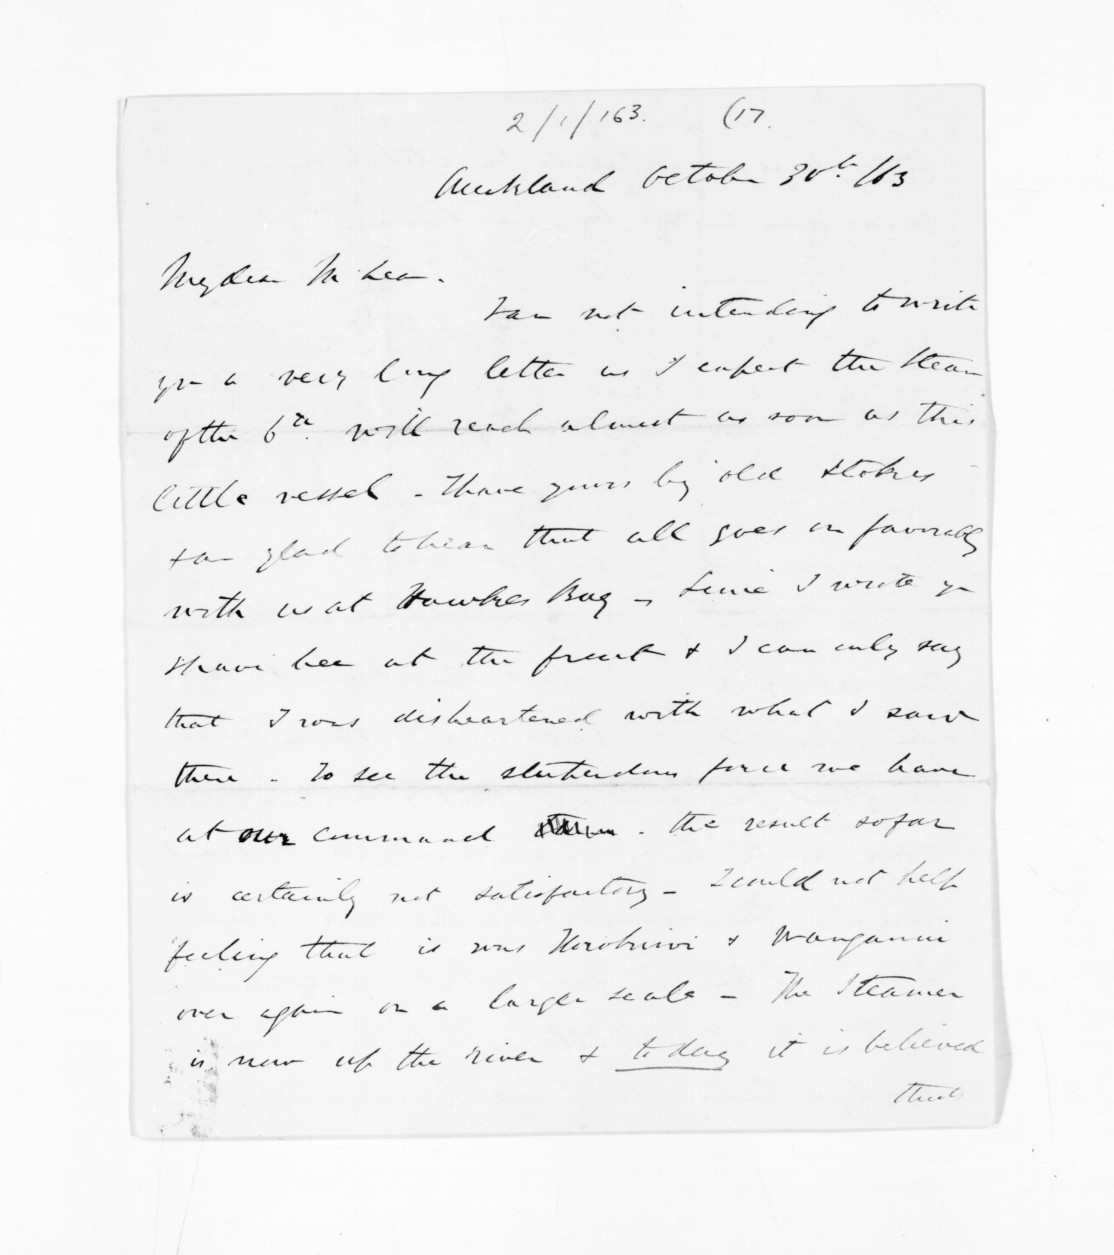 2/1/163. (17.
Auckland October 30th /63
My dear McLean.
I am not intending to write
yu a very long letter as I expect the Steam
of the 6th. will reach almost as soon as this
little vessel - I have yours by old Stokes -
& am glad to hear that all goes on favorably
with us at Hawkes Bay - Since I wrote yu
I have bee at the front & I can only say
that I was disheartened with what I saw
there - To see the stupendous force we have
at our command - the result so far
is certainly not satisfactory - I could not help
feeling that it was Horokiwi & Wanganui
over again on a larger scale - The Steamer
is now up the river & today it is believed
that